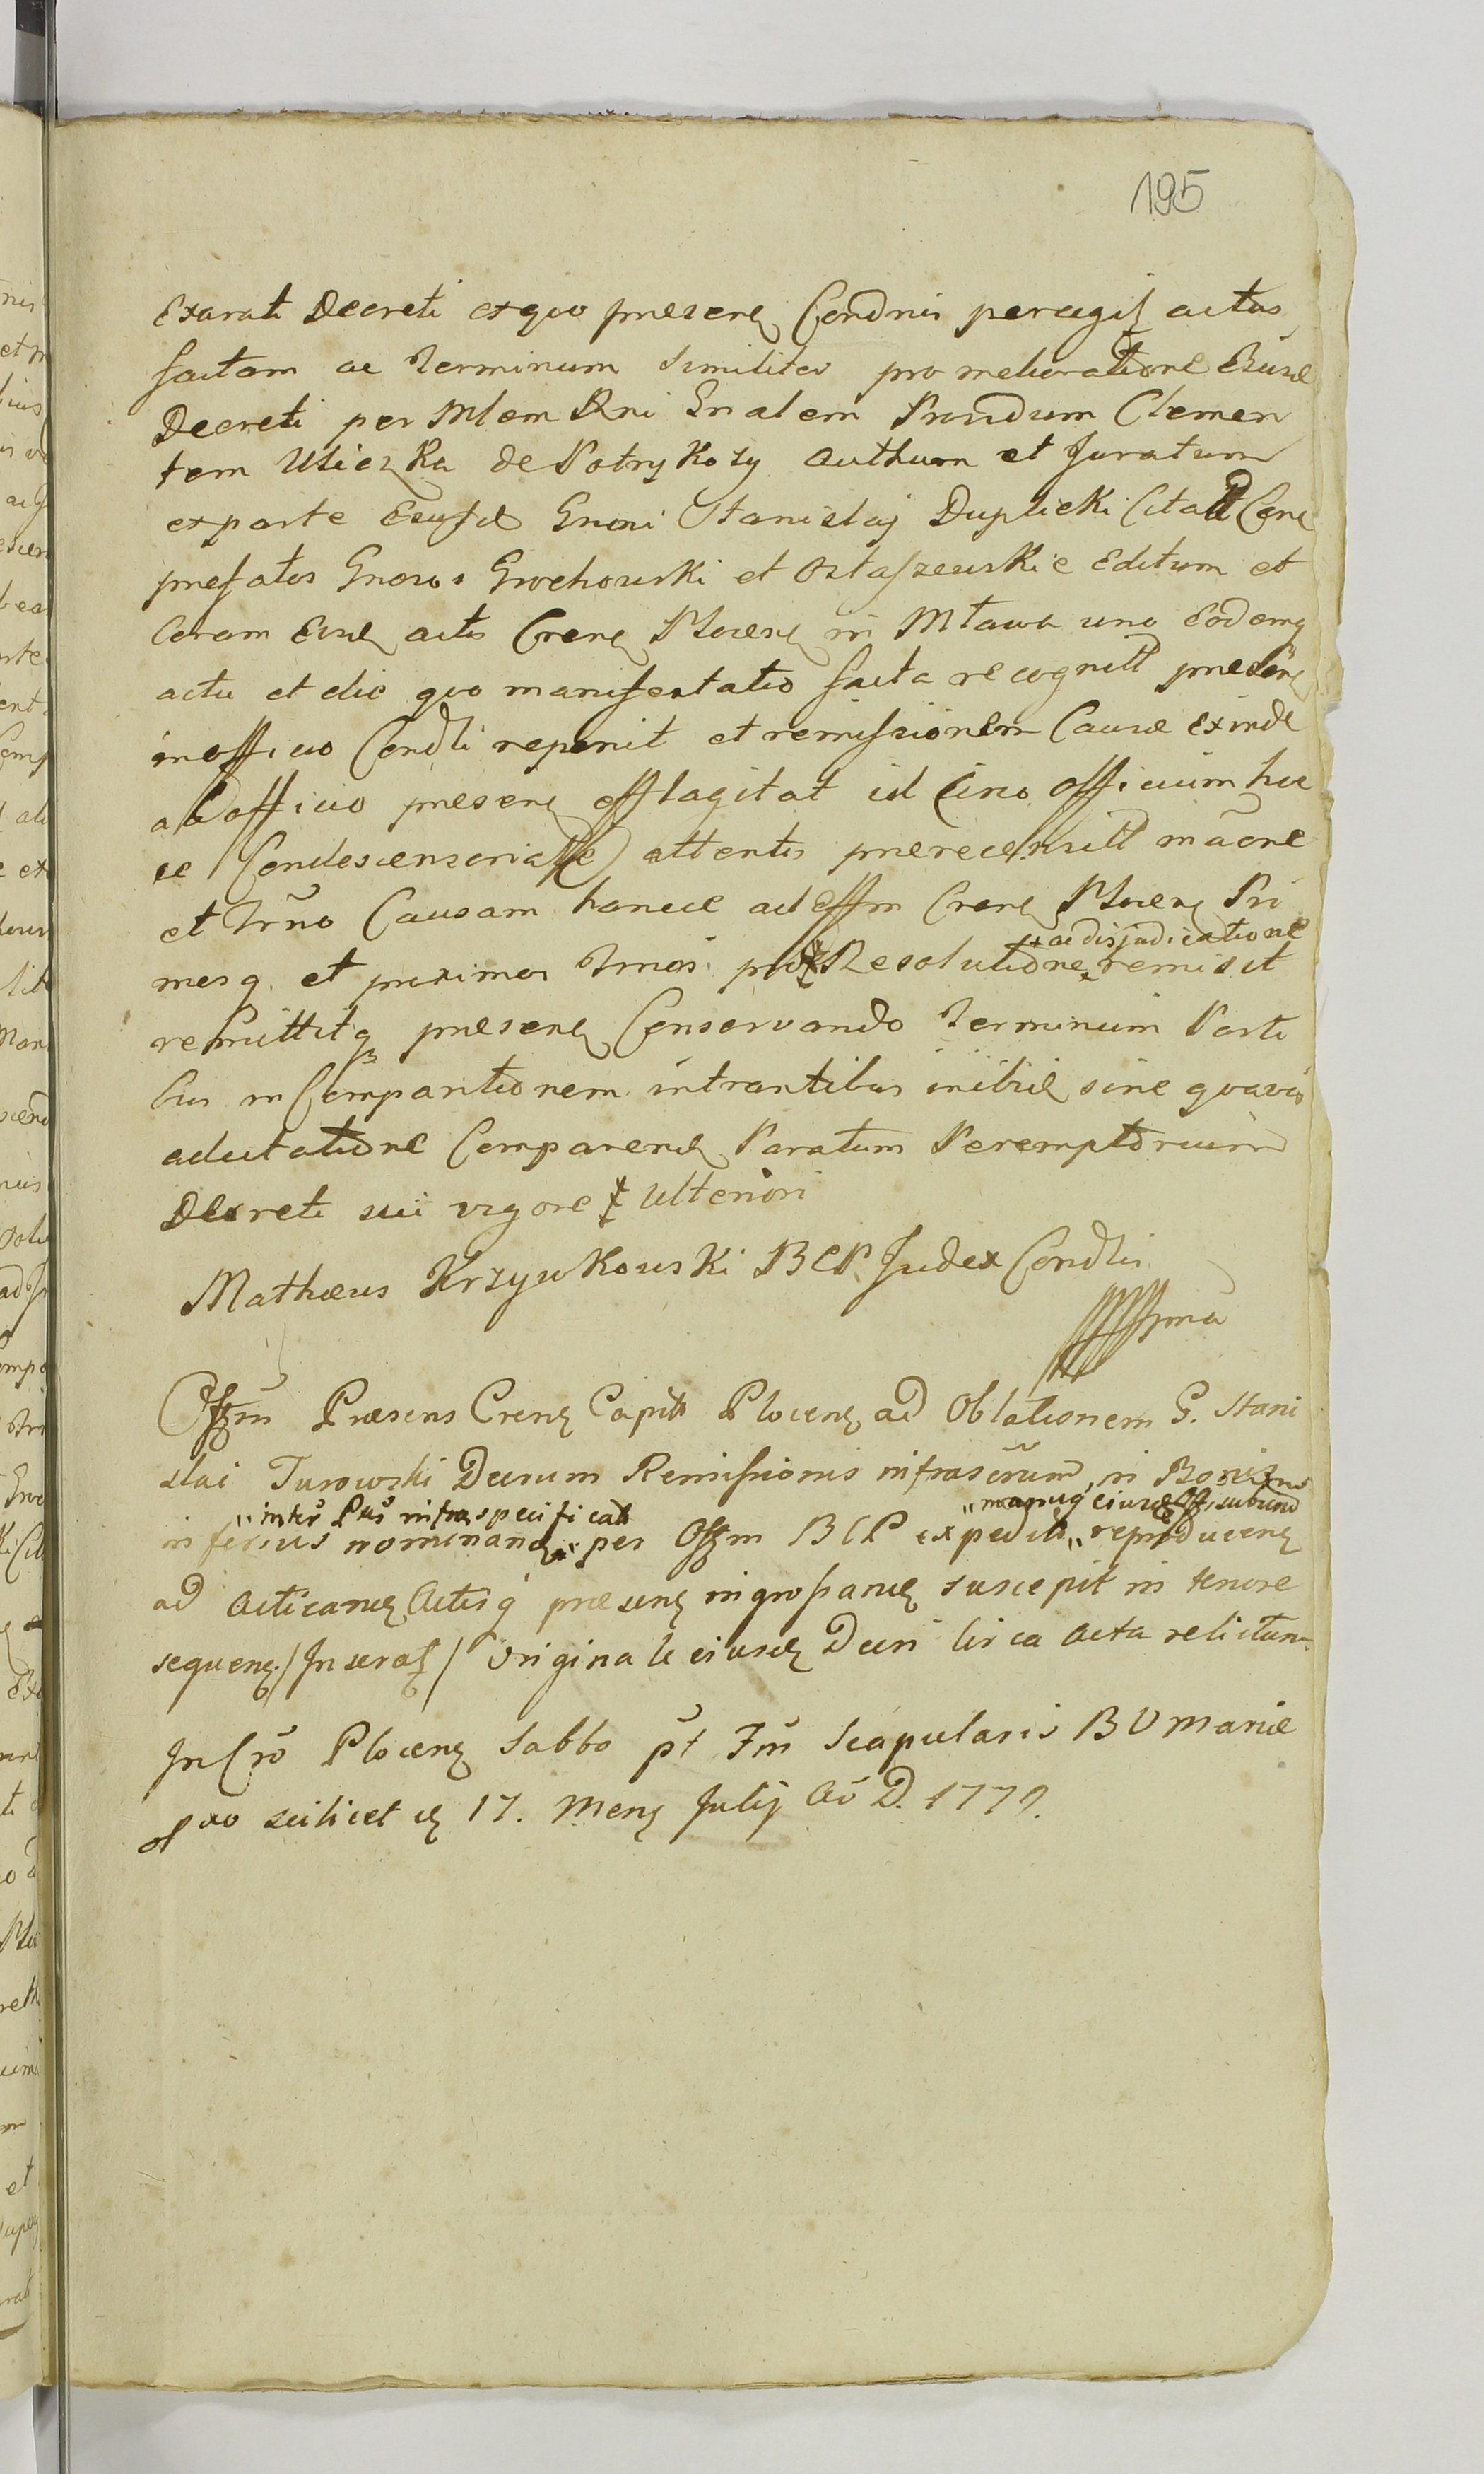 195
Exarati Decreti ex quo præsens Condnis peragit actus
factam ac Terminum similiter pro melioratione Eiusd
Decreti per Mlem Rni Gnalem Prondum Clemen
tem Uliczka de Potrykozy authum et Juratum
ex parte Eiusd Gnosi Stanislaj Duplicki Citatt Con
præfatos Gnosos Grochowski et Ostaszewskie Editum et
Coram Eisd actis Cren Plocen in Mława uno Eodemq
actu et die quo manifestatio facta recognitt præsen
in officio Condli reponit et remissionem Causæ exinde
ab officio præsen efflagitat id Circo officium hoc
ce Condescensoriale attentis prærecensitt maone
et Trno Causam hancce ad offm Cren Plocen Pri
mos q. et proximos Trnos pro Resolutione remisit
ac disjudicatione
remittitq præsen Conservando Terminum Parti
bus in Comparitionem intrantibus inibid sine quavis
adcitatione Comparend Paratum Peremptorium
Decreti sui vigore Ulteriori
Mathæus Krzywkowski BCP Judex Condlis
mpria
Offm Præsens Cren Capitt Plocen ad Oblationem G. Stani
slai Turowski Decrum Remissionis infrascrum, in Bonis
inter Pts infraspecificatt manuq eiusd Off subscrip
inferius nominand per Offm BCP expeditt reproducen
ad acticand Actisq præsen ingrossand suscepit in tenore
sequen / Inserat / Originale eiusd Decri circa Acta relictum
In Cro Plocen Sabbo pt Fm Scapularis B V Mariæ
pxo scilicet d 17. Mens Julij Ao D. 1779.